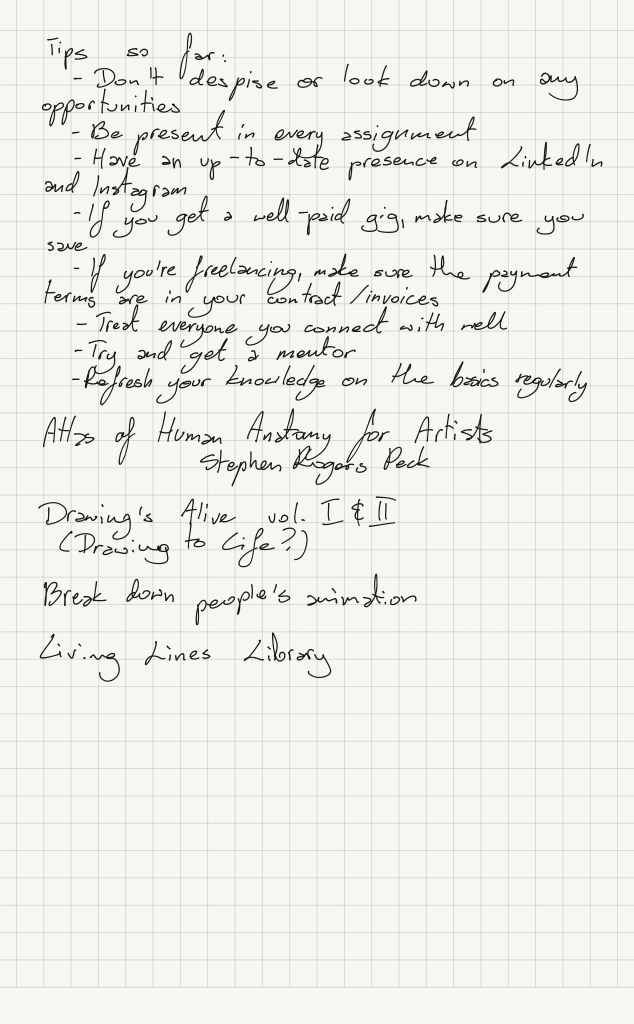 Tips so far:
- Don't despise or look down on any
opportunities
- Be present in every assignment
- Have an up-to-date presence on LinkedIn
and Instagram
- If you get a well-paid gig, make sure you
save
- If you're freelancing, make sure the payment
terms are in your contract/invoices
- Treat everyone you connect with well
- Try and get a mentor
- Refresh your knowledge on the basics regularly
Atlas of Human Anatomy for Artists
Stephen Rogers Peck
Drawing's Alive vol. I & II
(Drawing to Life?)
Break down people's animation
Living Lines Library